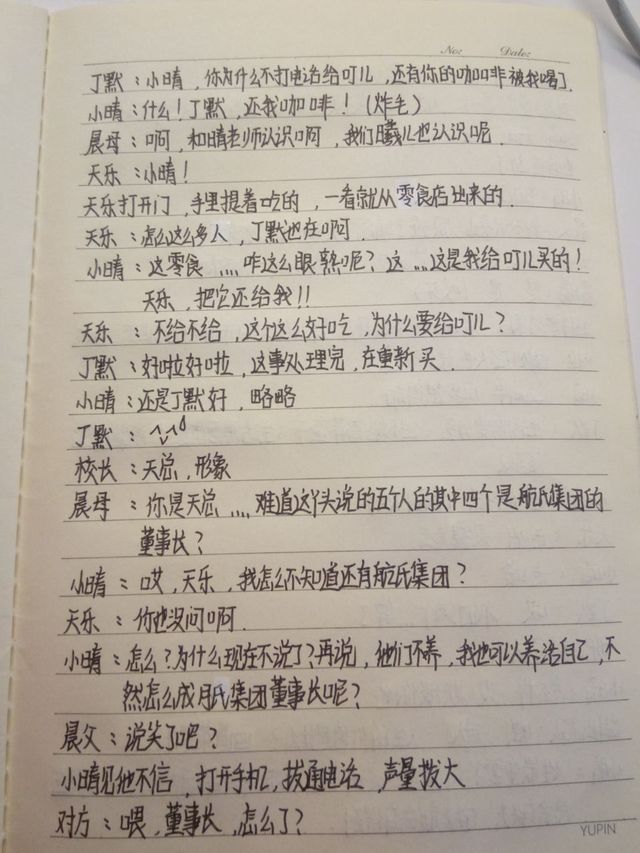 No:  Date:
丁默：小晴，你为什么不打电话给叮儿，还有你的咖啡被我喝了.
小晴：什么！丁默，还我咖啡！（炸毛）
晨母：啊，和晴老师认识啊，我们曦儿也认识呢.
天乐：小晴！
天乐打开门，手里提着吃的，一看就从零食店出来的.
天乐：怎么这么多人，丁默也在啊.
小晴：这零食....咋这么眼熟呢？这....这是我给叮儿买的！
天乐，把它还给我！！
天乐：不给不给，这个这么好吃，为什么要给叮儿？
丁默：好啦好啦，这事处理完，在重新买.
小晴：还是丁默好，略略
丁默：^_^
校长：天总，形象
晨母：你是天总....难道这丫头说的五个人的其中四个是航氏集团的
董事长？
小晴：哎，天乐，我怎么不知道还有航氏集团？
天乐：你也没问啊.
小晴：怎么？为什么现在不说了？再说，他们不养，我也可以养活自己，不
然怎么成月氏集团董事长呢？
晨父：说笑了吧？
小晴见他不信，打开手机，拨通电话，声量拨大
对方：喂，董事长，怎么了？
YUPIN